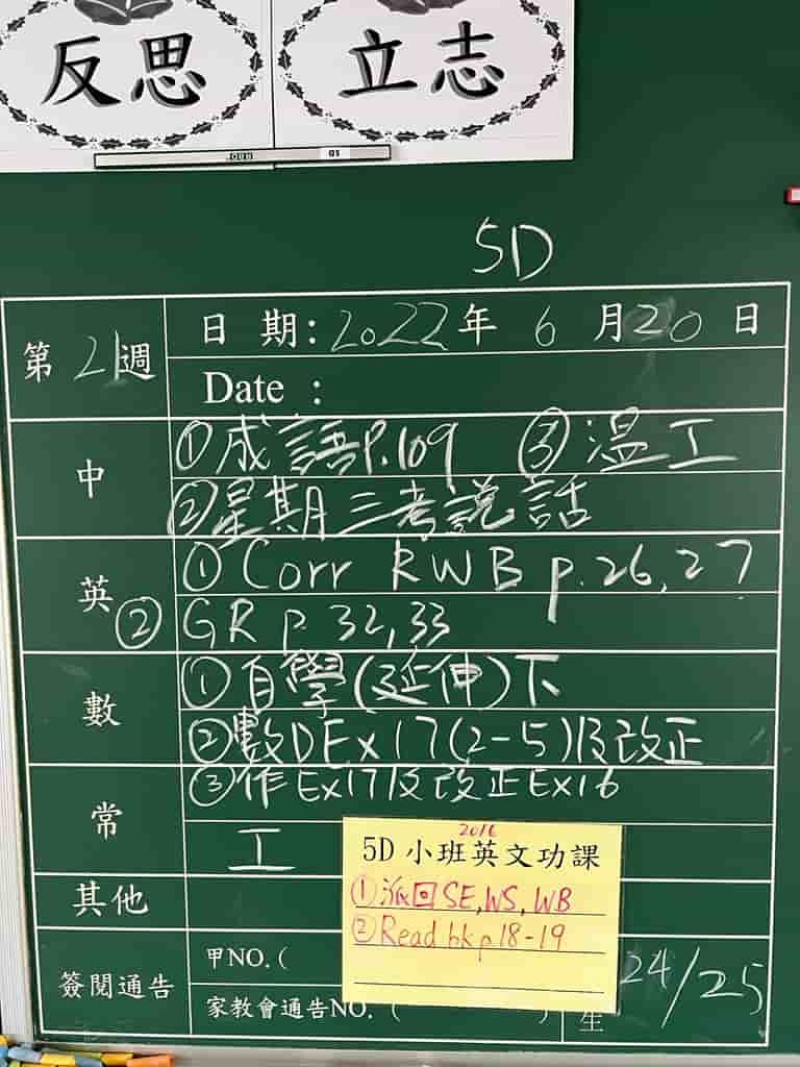 反思
立志
5D
第21週
日 期：2022年 6 月20日
Date ：
中
①成語P.109 ③温工
②星期三考說話
英
①Corr RWB p.26,27
②GR p 32,33
數
①自學(延伸)下
②數DEx 17(2-5)及改正
③作Ex17及改正Ex16
常
工
2016
5D 小班英文功課
①派回SE,WS,WB
②Read bk p.18-19
其他
簽閱通告
甲NO.(
家教會通告NO. (
)
生
24/25